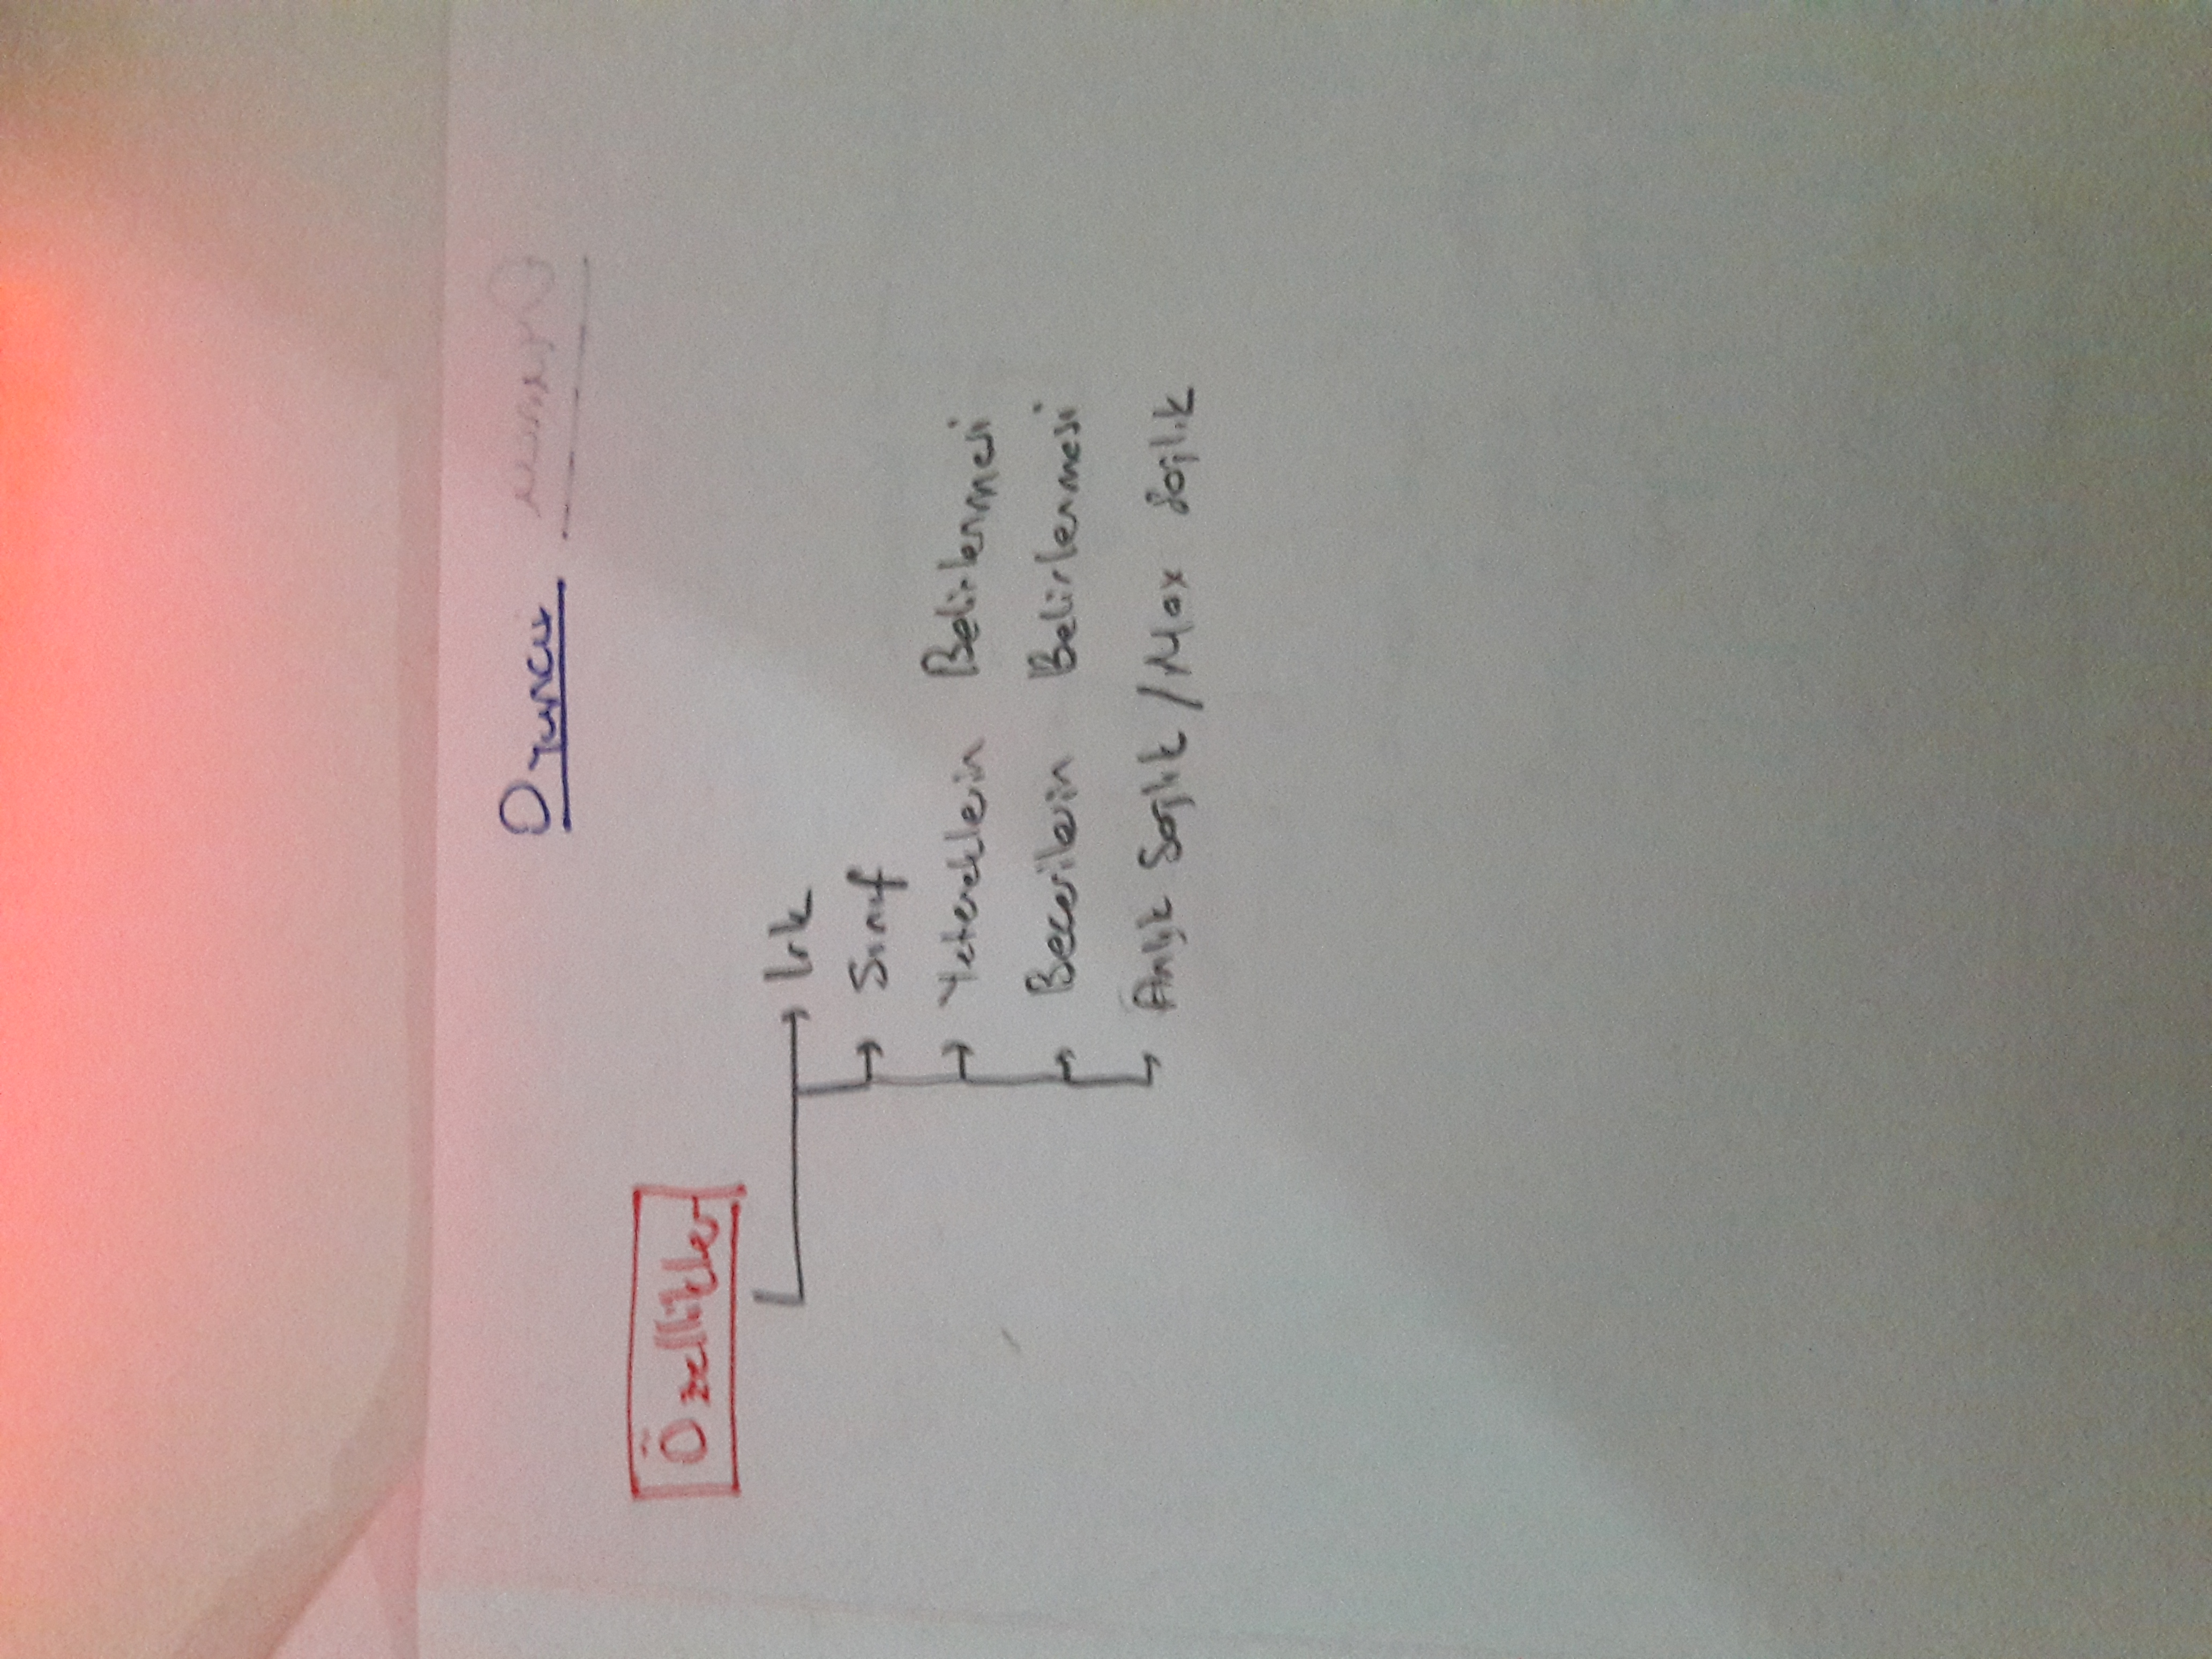 Oyuncu
Özellikler
Irk
Sınıf
Yeteneklerin Belirlenmesi
Becerilerin Belirlenmesi
Anlık Sağlık / Max Sağlık